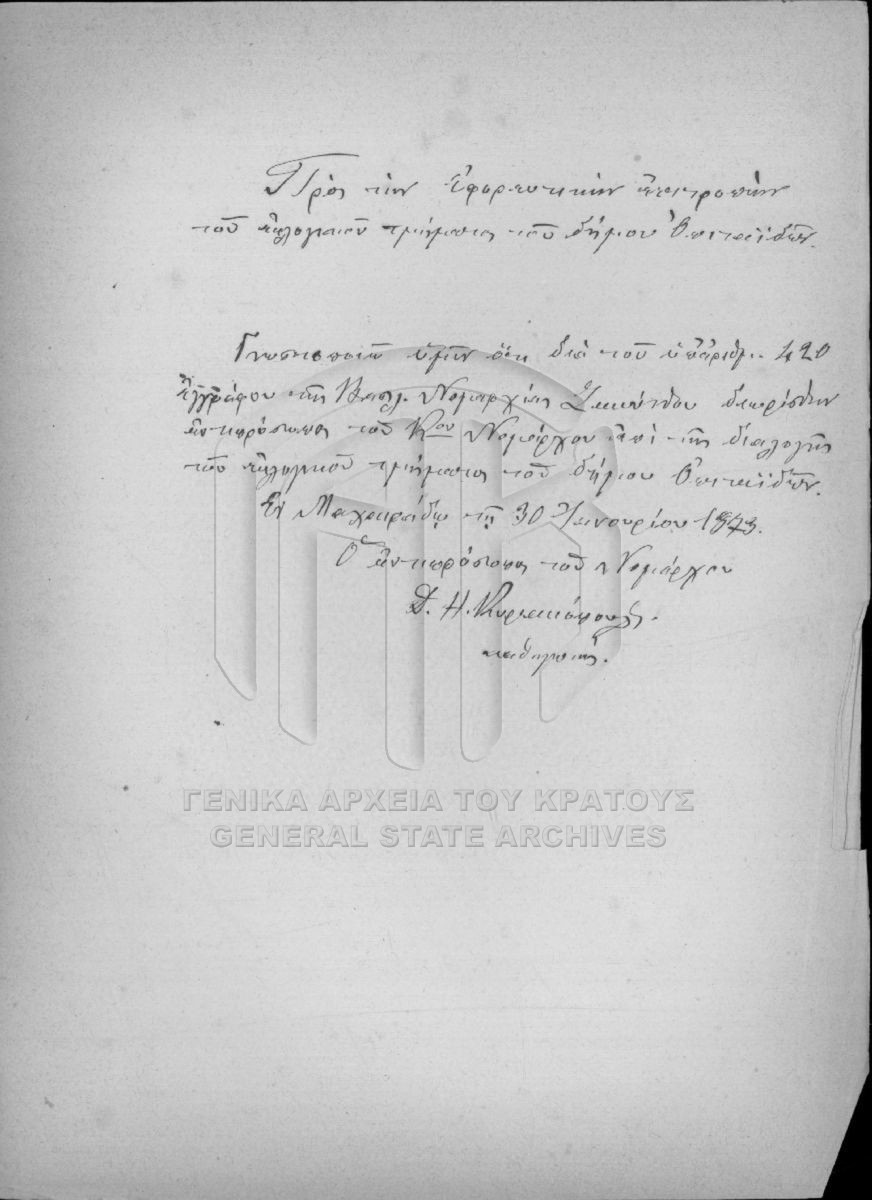 Πρὸς τὴν Ἐφορευτικὴν ἐπιτροπὴν
τοῦ ἐκλογικοῦ τμήματος τοῦ δήμου Ὀπιταϊδῶν.
Γνωστοποιῶ ὑμῖν ὅτι διὰ τοῦ ὑπ' ἀριθμ. 420
ἐγγράφου τῆς Βασιλ. Νομαρχίας Ζακύνθου διωρίσθην
ἀντιπρόσωπος τοῦ Κου Νομάρχου ἐπὶ τῆς διαλογῆς
τοῦ ἐκλογικοῦ τμήματος τοῦ δήμου Ὀπιταϊδῶν.
Ἐν Μαχαιράδῳ τῇ 30 Ἰανουαρίου 1873.
Ὁ ἀντιπρόσωπος τοῦ Νομάρχου
Δ. Η. Κυριακόπουλος.
καθηγητής.
ΓΕΝΙΚΑ ΑΡΧΕΙΑ ΤΟΥ ΚΡΑΤΟΥΣ
GENERAL STATE ARCHIVES